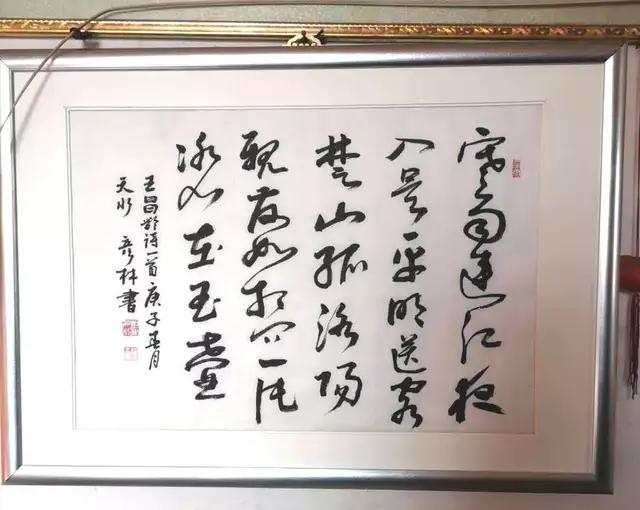 寒雨連江夜
入吴平明送客
楚山孤洛陽
親友如相問一片
冰心在玉壺
王昌龄诗一首庚子春月
天水 彦林書